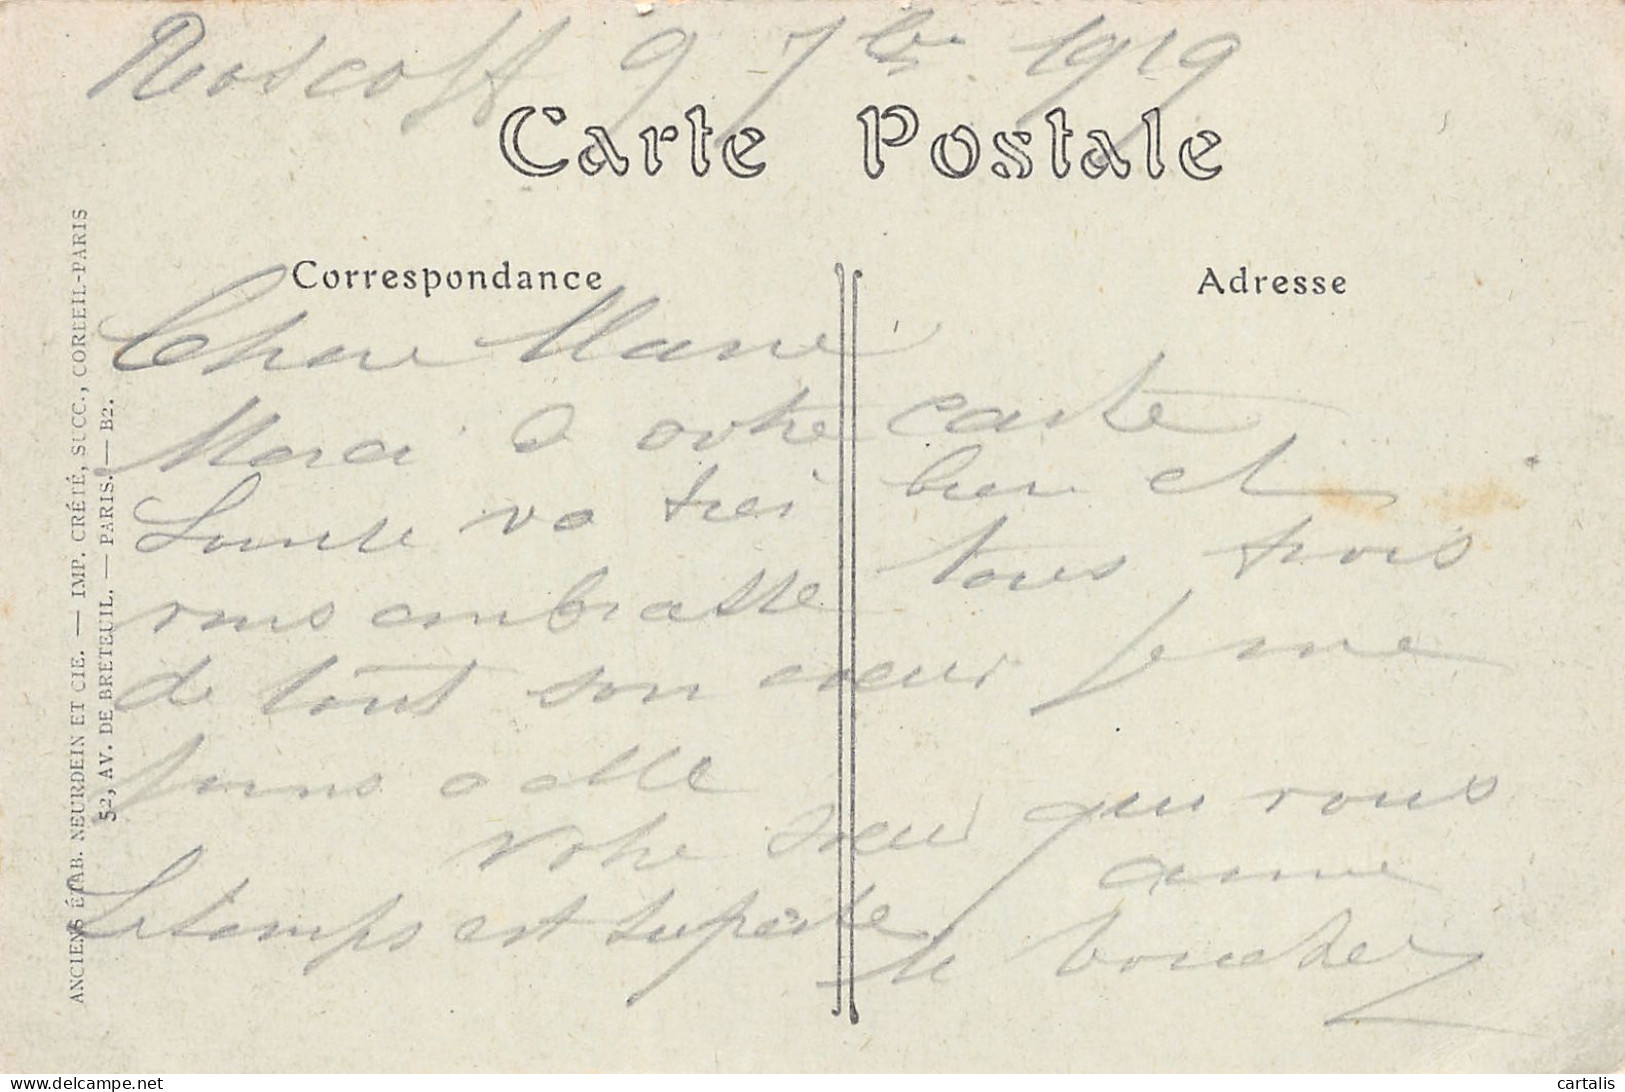 Roscoff 9 7bre 1919
Carte Postale
Correspondance
Adresse
Chere Marie
Merci à votre carte
va très bien et
vous embrasse tous trois
de tout son cœur je me
joins a elle
votre sœur qui vous
aime
Le temps est superbe
ANCIENS ÉTAB. NEURDEIN ET CIE. — IMP. CRÉTÉ, SUCC., CORBEIL-PARIS
52, AV. DE BRETEUIL. — PARIS. — B2.
cartalis
delcampe.net